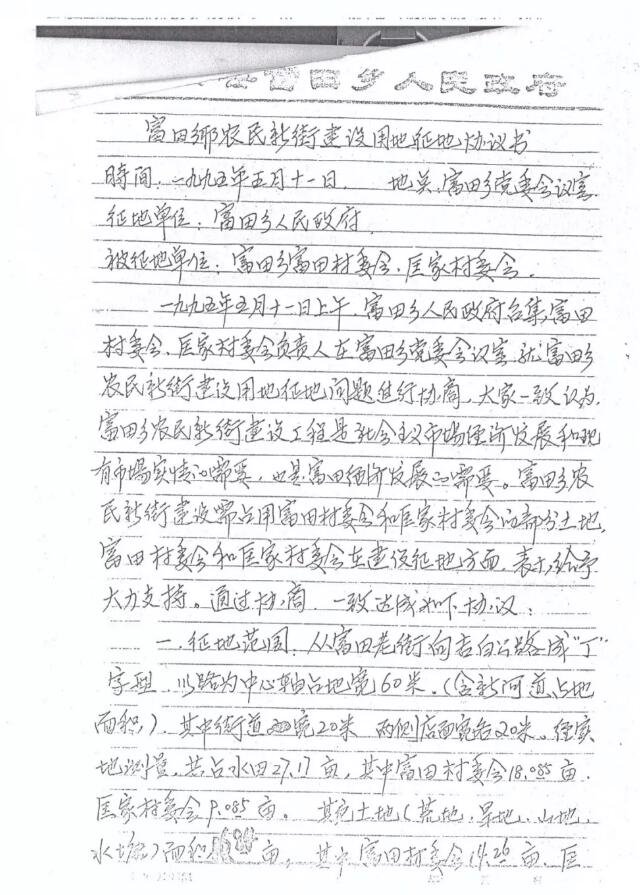 富田乡人民政府
富田乡农民新街建设用地征地协议书
时间:一九九五年五月十一日. 地点:富田乡党委会议室
征地单位:富田乡人民政府.
被征地单位:富田乡富田村委会.匡家村委会.
一九九五年五月十一日上午.富田乡人民政府召集富田
村委会.匡家村委会负责人在富田乡党委会议室.就富田乡
农民新街建设用地征地问题进行协商,大家一致认为,
富田乡农民新街建设工程是社会主义市场经济发展和现
有市场实情的需要,也是富田经济发展的需要。富田乡农
民新街建设需占用富田村委会和匡家村委会的部分土地,
富田村委会和匡家村委会在建设征地方面,表示给予
大力支持。通过协商.一致达成如下协议:
一.征地范围.从富田老街向吉白公路成“丁”
字型.以路为中心轴占地宽60米.(含新河道占地
面积).其中街道宽20米 两侧店面宽各20米。经实
地测量,共占水田27.17亩,其中富田村委会18.085亩.
匡家村委会9.085亩。其它土地(荒地.旱地.山地.
水塘)面积 亩,其中富田村委会14.26亩.匡